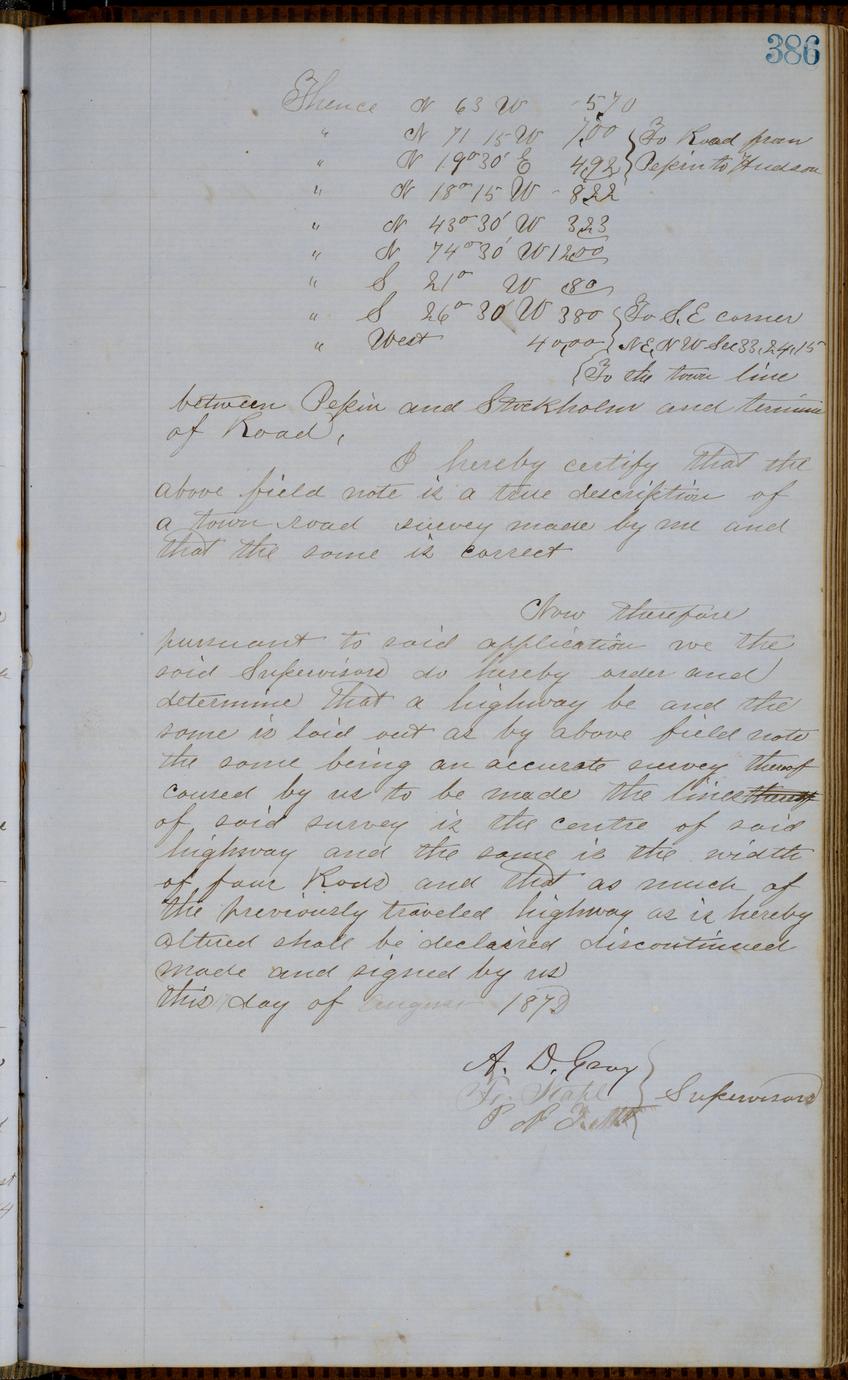 386
Thence N 63 W 5,70
" N 71 15 W 7,00 } To Road from
" N 19° 30' E 4,92 } Pepin to Hudson
" N 18° 15 W - 822
" N 43° 30' W 323
" N 74° 30' W 1200
" S 21° W 80
" S 26° 30' W 380 { To S.E corner
" West 40,00 { N.E, N W Sec 33, 24, 15
{ To the town line
between Pepin and Stockholm and termini
of Road,
I hereby certify that the
above field note is a true description of
a town road survey made by me and
that the same is correct
Now therefore
pursuant to said application we the
said Supervisors do hereby order and
determine that a highway be and the
same is laid out as by above field note
the same being an accurate survey therof
caused by us to be made the lines thereof
of said survey is the centre of said
highway and the same is the width
of four Rods and that as much of
the previously traveled highway as is hereby
altured shall be declaired discontinued
made and signed by us
this day of August 187
A. D. Gray
Supervisors
P N